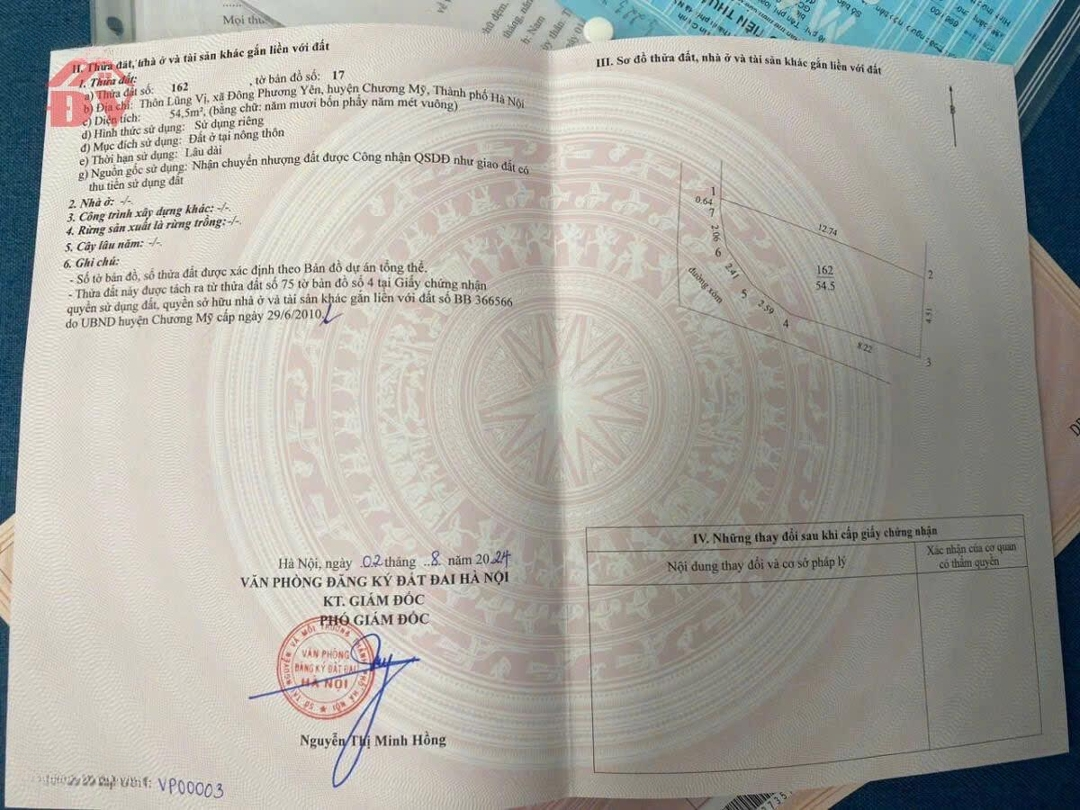 Mọi thư
II. Thửa đất, nhà ở và tài sản khác gắn liền với đất
1. Thửa đất:
a) Thửa đất số: 162 , tờ bản đồ số: 17
b) Địa chỉ: Thôn Lũng Vị, xã Đông Phương Yên, huyện Chương Mỹ, Thành phố Hà Nội
c) Diện tích: 54,5m², (bằng chữ: năm mươi bốn phẩy năm mét vuông)
d) Hình thức sử dụng: Sử dụng riêng
đ) Mục đích sử dụng: Đất ở tại nông thôn
e) Thời hạn sử dụng: Lâu dài
g) Nguồn gốc sử dụng: Nhận chuyển nhượng đất được Công nhận QSDĐ như giao đất có
thu tiền sử dụng đất
2. Nhà ở: -/-
3. Công trình xây dựng khác: -/-
4. Rừng sản xuất là rừng trồng:-/-
5. Cây lâu năm: -/-
6. Ghi chú:
- Số tờ bản đồ, số thửa đất được xác định theo Bản đồ dự án tổng thể.
- Thửa đất này được tách ra từ thửa đất số 75 tờ bản đồ số 4 tại Giấy chứng nhận
quyền sử dụng đất, quyền sở hữu nhà ở và tài sản khác gắn liền với đất số BB 366566
do UBND huyện Chương Mỹ cấp ngày 29/6/2010
Hà Nội, ngày 02 tháng 8 năm 2024
VĂN PHÒNG ĐĂNG KÝ ĐẤT ĐAI HÀ NỘI
KT. GIÁM ĐỐC
PHÓ GIÁM ĐỐC
SỞ TÀI NGUYÊN VÀ MÔI TRƯỜNG THÀNH PHỐ HÀ NỘI
VĂN PHÒNG
ĐĂNG KÝ ĐẤT ĐAI
HÀ NỘI
Nguyễn Thị Minh Hồng
VP00003
III. Sơ đồ thửa đất, nhà ở và tài sản khác gắn liền với đất
B
1
0.64
7
2.06
6
2.41
5
2.59
4
8.22
3
4.51
2
12.74
162
54.5
đường xóm
IV. Những thay đổi sau khi cấp giấy chứng nhận
Nội dung thay đổi và cơ sở pháp lý
Xác nhận của cơ quan
có thẩm quyền